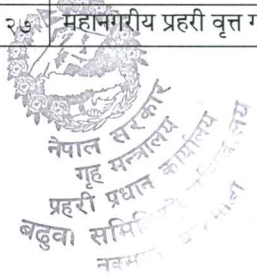 २७ महानगरीय प्रहरी वृत्त
नेपाल सरकार
गृह मन्त्रालय
प्रहरी प्रधान कार्यालय
बढुवा समिति